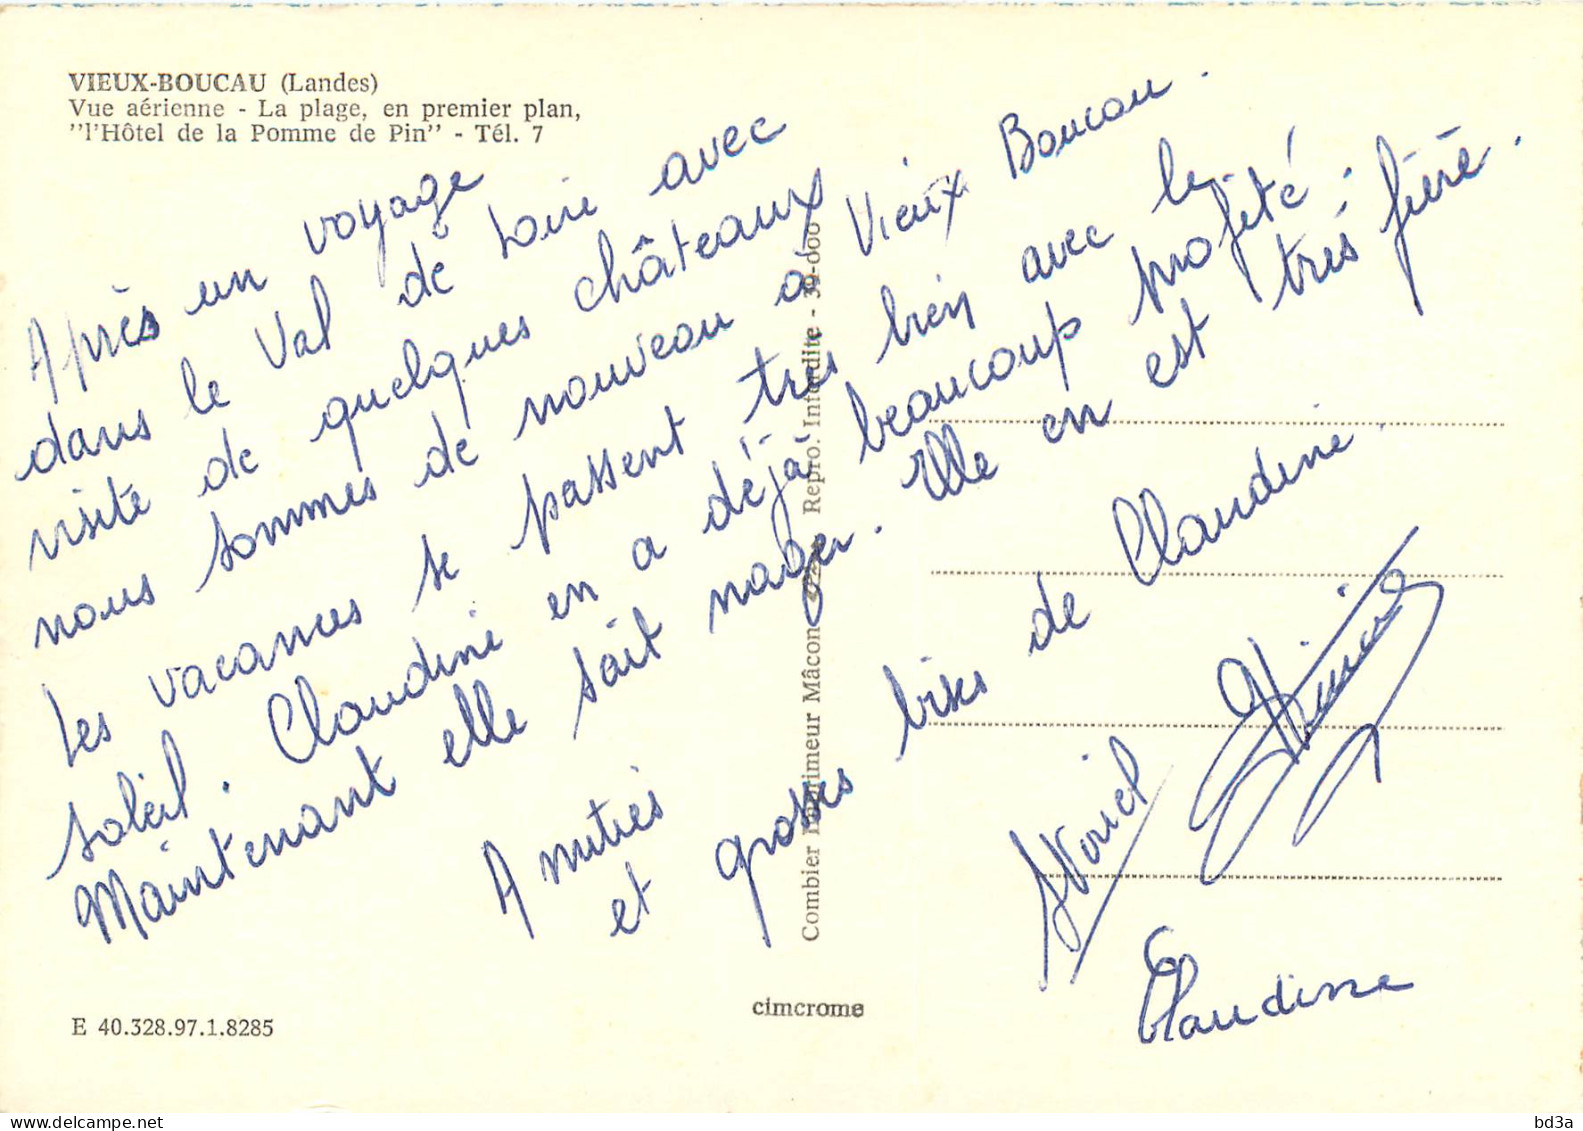 VIEUX-BOUCAU (Landes)
Vue aérienne - La plage, en premier plan,
"l'Hôtel de la Pomme de Pin" - Tél. 7
Après un voyage
dans le Val de Loire avec
visite de quelques châteaux
nous sommes de nouveau à Vieux Boucau.
Les vacances se passent très bien avec le
soleil. Claudine en a déjà beaucoup profité.
Maintenant elle sait nager. Elle en est très fière.
Amitiés
et grosses bises de Claudine.
Claudine
Combier Imprimeur Mâcon Repro. Interdite - 39-000
cimcrome
E 40.328.97.1.8285
delcampe.net
bd3a